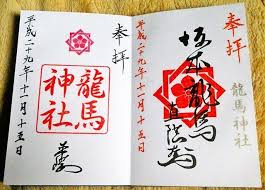 奉拝
龍馬神社
坂本龍馬
直陰
平成二十九年十一月十五日
奉拝
龍馬
神社
平成二十九年十一月十五日